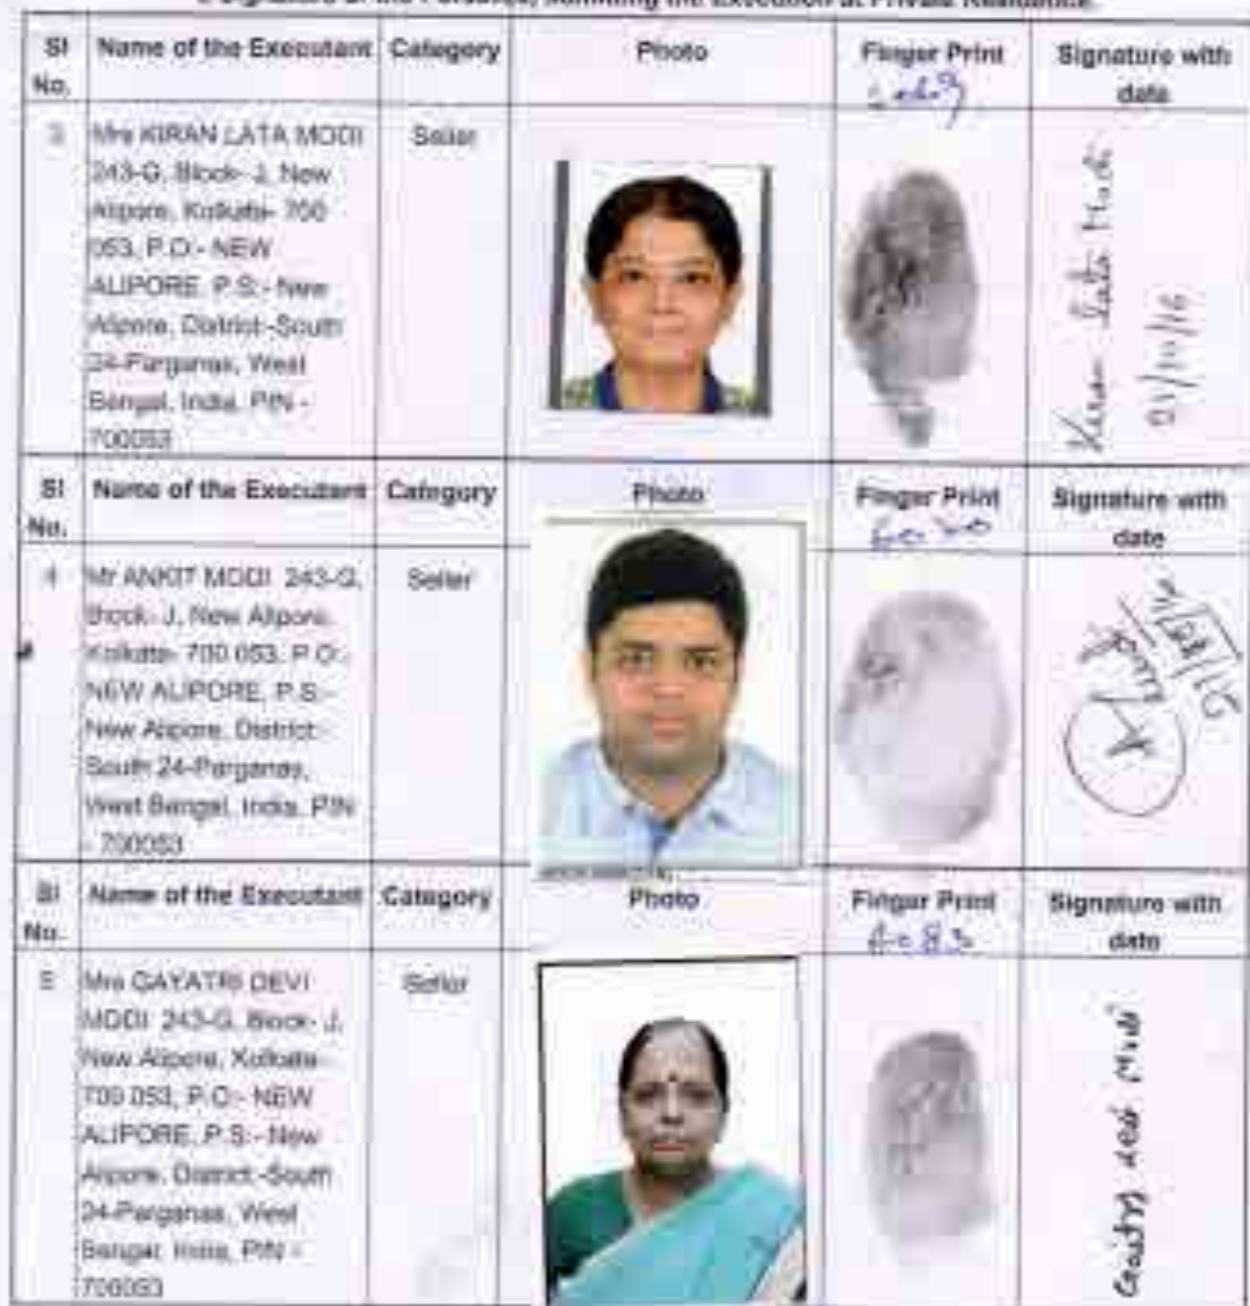 Signature of the Person(s) admitting the Execution at Private Residence.
Sl No. Name of the Executant Category Photo Finger Print Signature with date
3 Mrs KIRAN LATA MODI Seller
243-G, Block- J, New
Alipore, Kolkata- 700
053, P.O:- NEW
ALIPORE, P.S:- New
Alipore, District:-South
24-Parganas, West
Bengal, India, PIN -
700053
Kiran Lata Modi
Sl No. Name of the Executant Category Photo Finger Print Signature with date
4 Mr ANKIT MODI 243-G,
Block- J, New Alipore,
Kolkata- 700 053, P.O:-
NEW ALIPORE, P.S:-
New Alipore, District:-
South 24-Parganas,
West Bengal, India, PIN
- 700053
Seller
Sl No. Name of the Executant Category Photo Finger Print Signature with date
5 Mrs GAYATRI DEVI
MODI 243-G, Block- J,
New Alipore, Kolkata-
700 053, P.O:- NEW
ALIPORE, P.S:- New
Alipore, District:-South
24-Parganas, West
Bengal, India, PIN -
700053
Seller